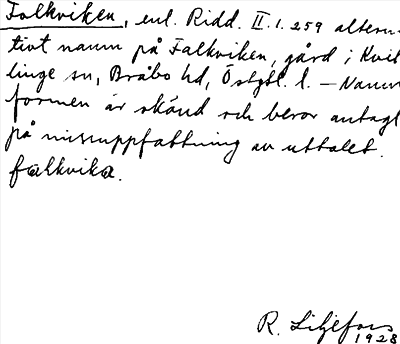 Folkviken, enl. Ridd. II. 1. 259 altern-
tivt namn på Falkviken, gård i Kvil
linge sn, Bråbo hd, Östgöt. l. – Namn
formen är okänd och beror antagl
på missuppfattning av uttalet.
falkvika.
R. Liljefors
1928